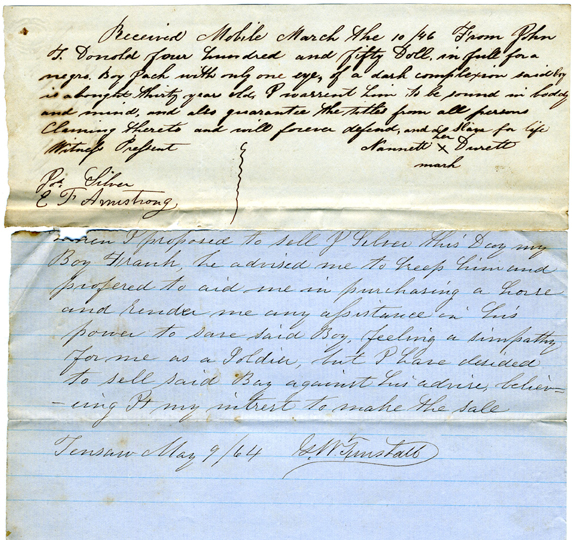 Received Mobile March the 10/46 From John
T. Donold four hundred and fifty Doll, in full for a
negro Boy Jach with only one eye, of a dark complexion said boy
is abought thirty year old, I warrent him to be sound in body
and mind, and also guarantee the titles from all persons
Claiming thereto and will forever defend, and a Slave for life
Witness Pressent Nannett her X Durett
mark
Jos Silver
E T Armstrong
when I proposed to sell J Silver this Day my
Boy Frank, he advised me to keep him and
profered to aid me in purchasing a horse
and render me any assistance in his
power to save said Boy, feeling a simpathy
for me as a Soldier, but I have desided
to sell said Boy against his advise, believ=
=ing It my intrest to make the sale
Tensaw May 9/64 W Tunstall